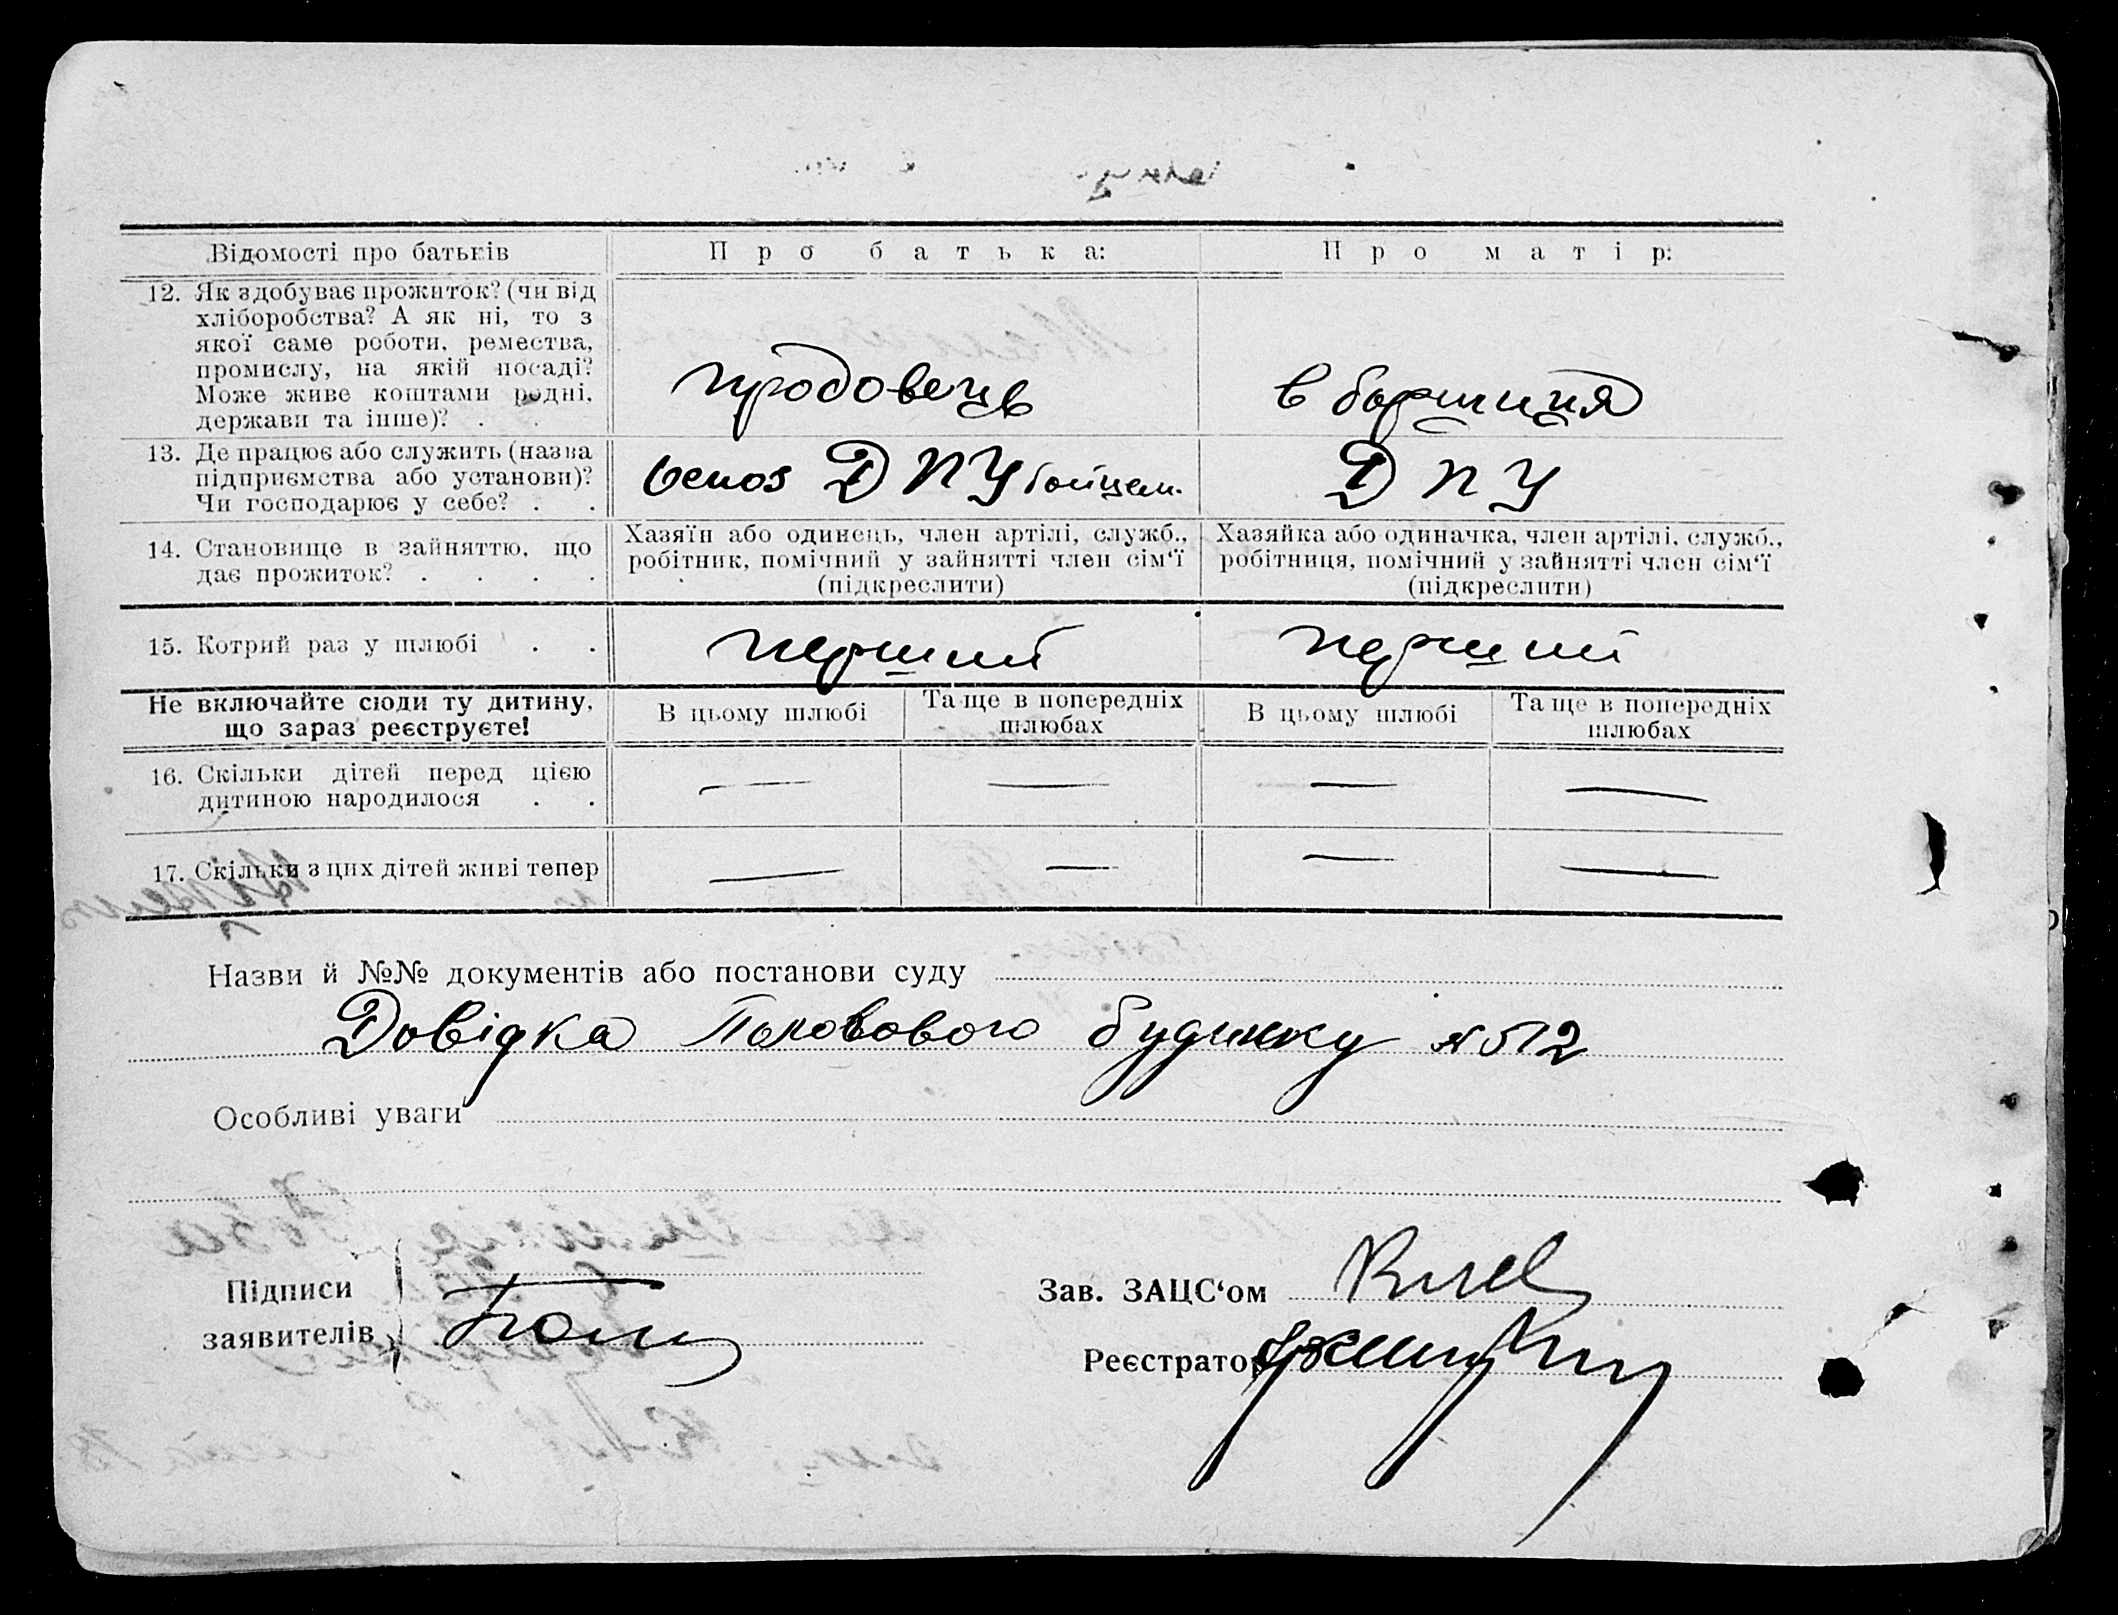 Відомості про батьків
Про батька:
Про матір:
12. Як здобуває прожиток? (чи від
хліборобства? А як ні, то з
якої саме роботи, ремества,
промислу, на якій посаді?
Може живе коштами родні,
держави та інше)? .
продовець
13. Де працює або служить (назва
підприємства або установи)?
Чи господарює у себе? . .
ДПУ
ДПУ
14. Становище в зайняттю, що
дає прожиток? . . . .
Хазяїн або одинець, член артілі, служб.,
робітник, помічний у зайнятті член сім‘ї
(підкреслити)
Хазяйка або одиначка, член артілі, служб.,
робітниця, помічний у зайнятті член сім‘ї
(підкреслити)
15. Котрий раз у шлюбі . .
перший
перший
Не включайте сюди ту дитину,
що зараз реєструєте!
В цьому шлюбі
Та ще в попередніх
шлюбах
В цьому шлюбі
Та ще в попередніх
шлюбах
16. Скільки дітей перед цією
дитиною народилося . .
— — — —
17. Скільки з цих дітей живі тепер
— — — —
Назви й №№ документів або постанови суду
Довідка Пологового будинку № 512
Особливі уваги
Підписи
заявителів
Зав. ЗАЦС‘ом
Реєстратор